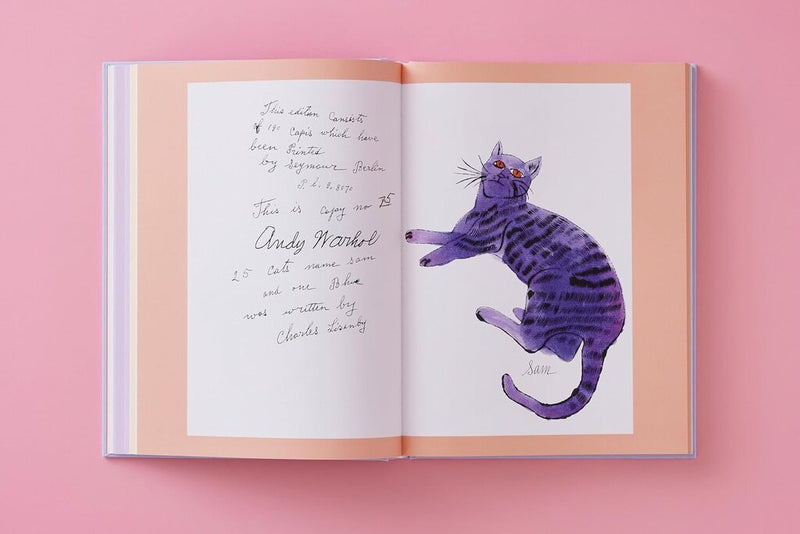 This edition Consists
of 190 Capis which have
been Printed
by Seymour Berlin
P. L. 8, 8070
This is copay no 75
Andy Warhol
25 Cats name sam
and one Blue
was written by
Charles Lisanby
Sam